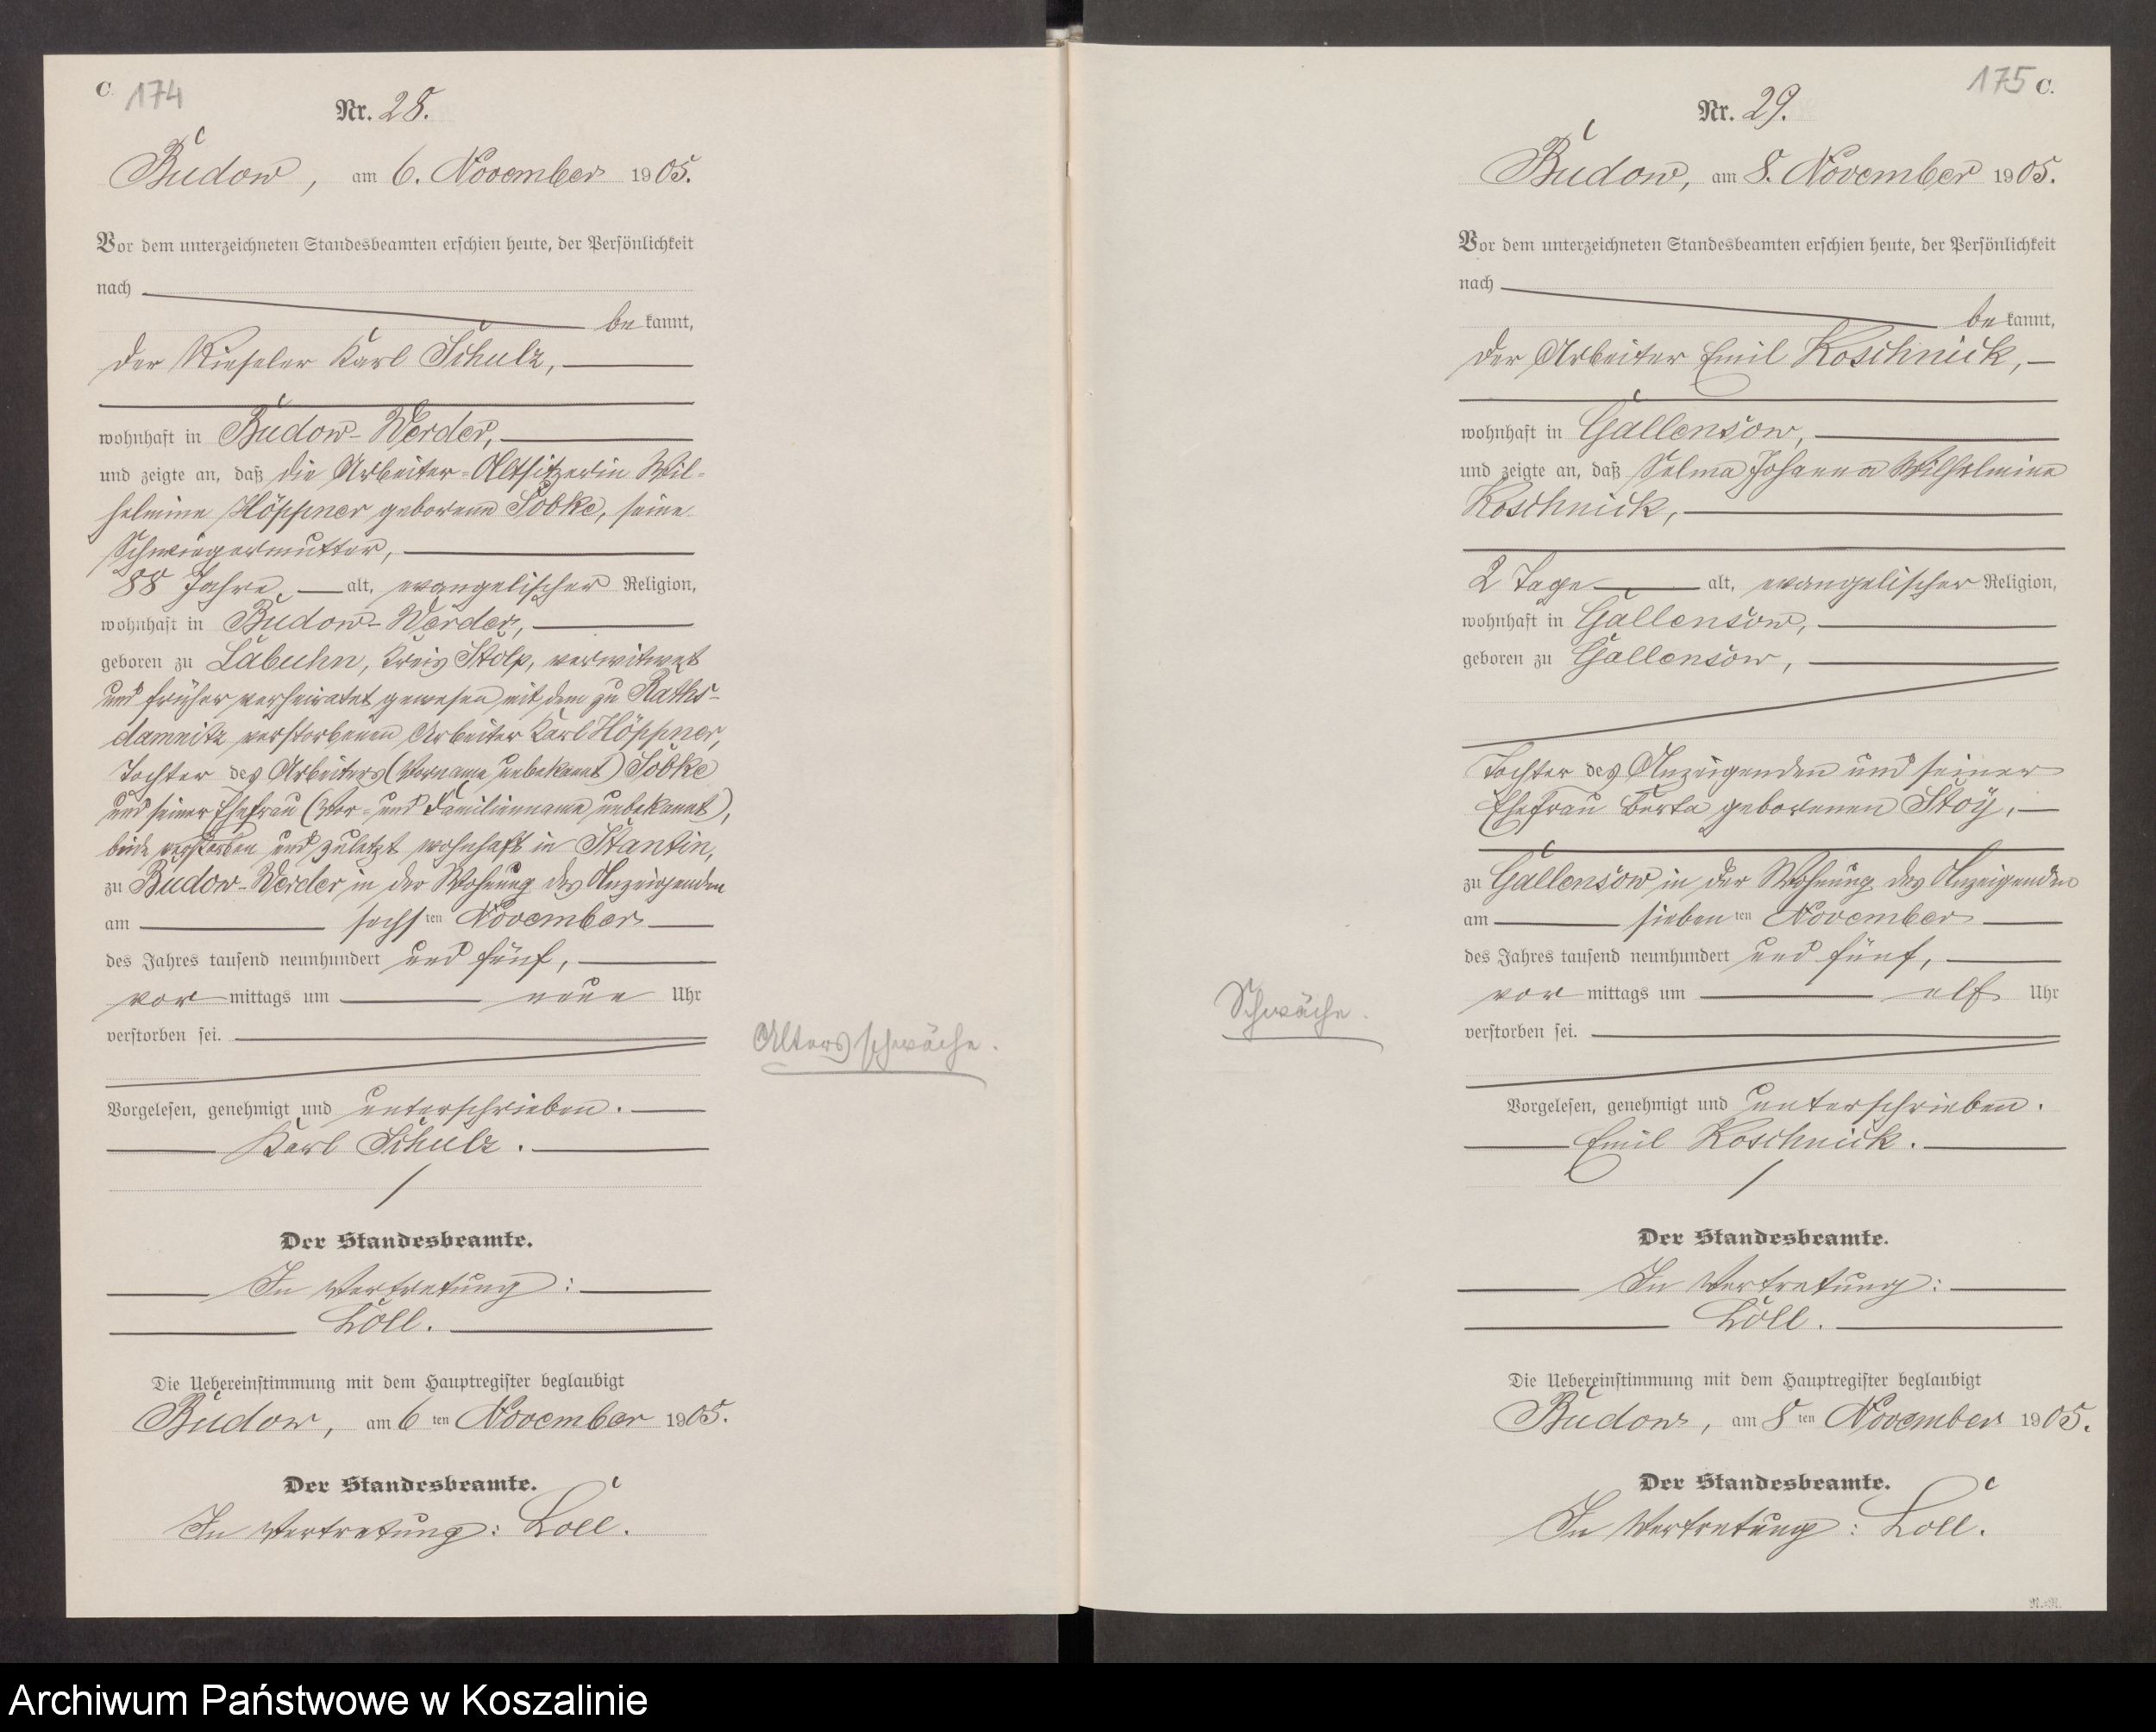 C. 174
Nr. 28.
Budow, am 6. November 1905.
Vor dem unterzeichneten Standesbeamten erschien heute, der Persönlichkeit
nach
be kannt,
der Rieseler Karl Schulz,
wohnhaft in Budow-Werder,
und zeigte an, daß die Arbeiter-Altsitzerin Wil-
helmine Höppner geborene Sobke, seine
Schwiegermutter,
88 Jahre alt, evangelischer Religion,
wohnhaft in Budow-Werder,
geboren zu Labuhn, Kreis Stolp, verwitwet
und früher verheiratet gewesen mit dem zu Raths-
damnitz verstorbenen Arbeiter Karl Höppner,
Tochter des Arbeiters (Vorname unbekannt) Sobke
und seiner Ehefrau (Vor- und Familienname unbekannt),
beide verstorben und zuletzt wohnhaft in Stantin,
zu Budow-Werder in der Wohnung des Anzeigenden
am sechs ten November
des Jahres tausend neunhundert und fünf,
vor mittags um neun Uhr
verstorben sei.
Altersschwäche.
Vorgelesen, genehmigt und unterschrieben.
Karl Schulz.
Der Standesbeamte.
In Vertretung:
Loll.
Die Uebereinstimmung mit dem Hauptregister beglaubigt
Budow, am 6 ten November 1905.
Der Standesbeamte.
In Vertretung: Loll.
175 C.
Nr. 29.
Budow, am 8. November 1905.
Vor dem unterzeichneten Standesbeamten erschien heute, der Persönlichkeit
nach
be kannt,
der Arbeiter Emil Koschnick,
wohnhaft in Gallensow,
und zeigte an, daß Selma Johanna Wilhelmine
Koschnick,
2 Tage alt, evangelischer Religion,
wohnhaft in Gallensow,
geboren zu Gallensow,
Tochter des Anzeigenden und seiner
Ehefrau Berta geborenen Stoy,
zu Gallensow in der Wohnung des Anzeigenden
am sieben ten November
des Jahres tausend neunhundert und fünf,
vor mittags um elf Uhr
verstorben sei.
Schwäche.
Vorgelesen, genehmigt und unterschrieben.
Emil Koschnick.
Der Standesbeamte.
In Vertretung:
Loll.
Die Uebereinstimmung mit dem Hauptregister beglaubigt
Budow, am 8 ten November 1905.
Der Standesbeamte.
In Vertretung: Loll.
Archiwum Państwowe w Koszalinie